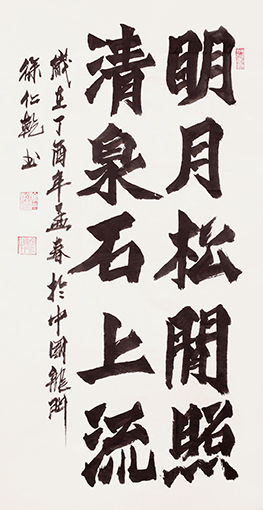 明月松間照
清泉石上流
歲在丁酉年孟春於中國龍潭
徐仁乾书